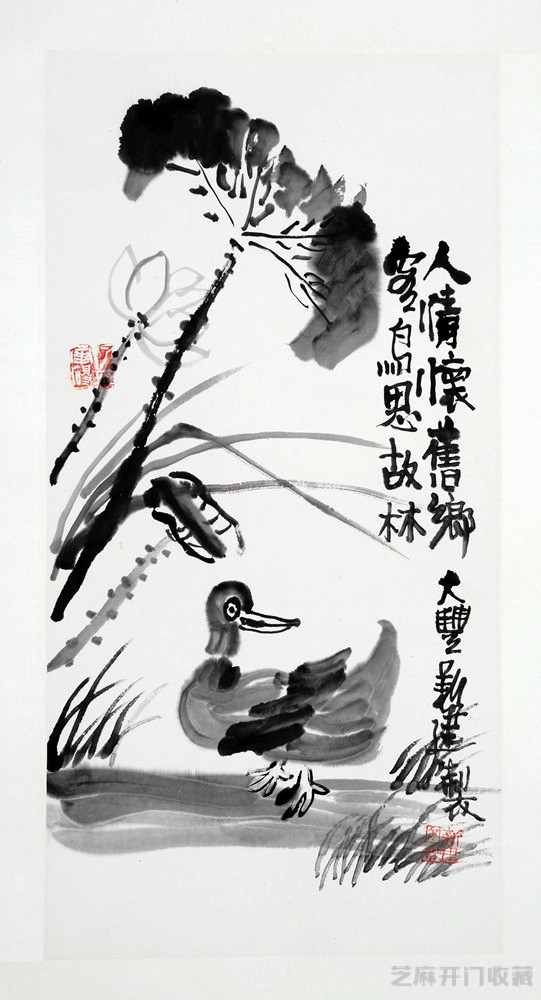 人情懷舊鄉
客鳥思故林
大豐新建製
芝麻开门收藏